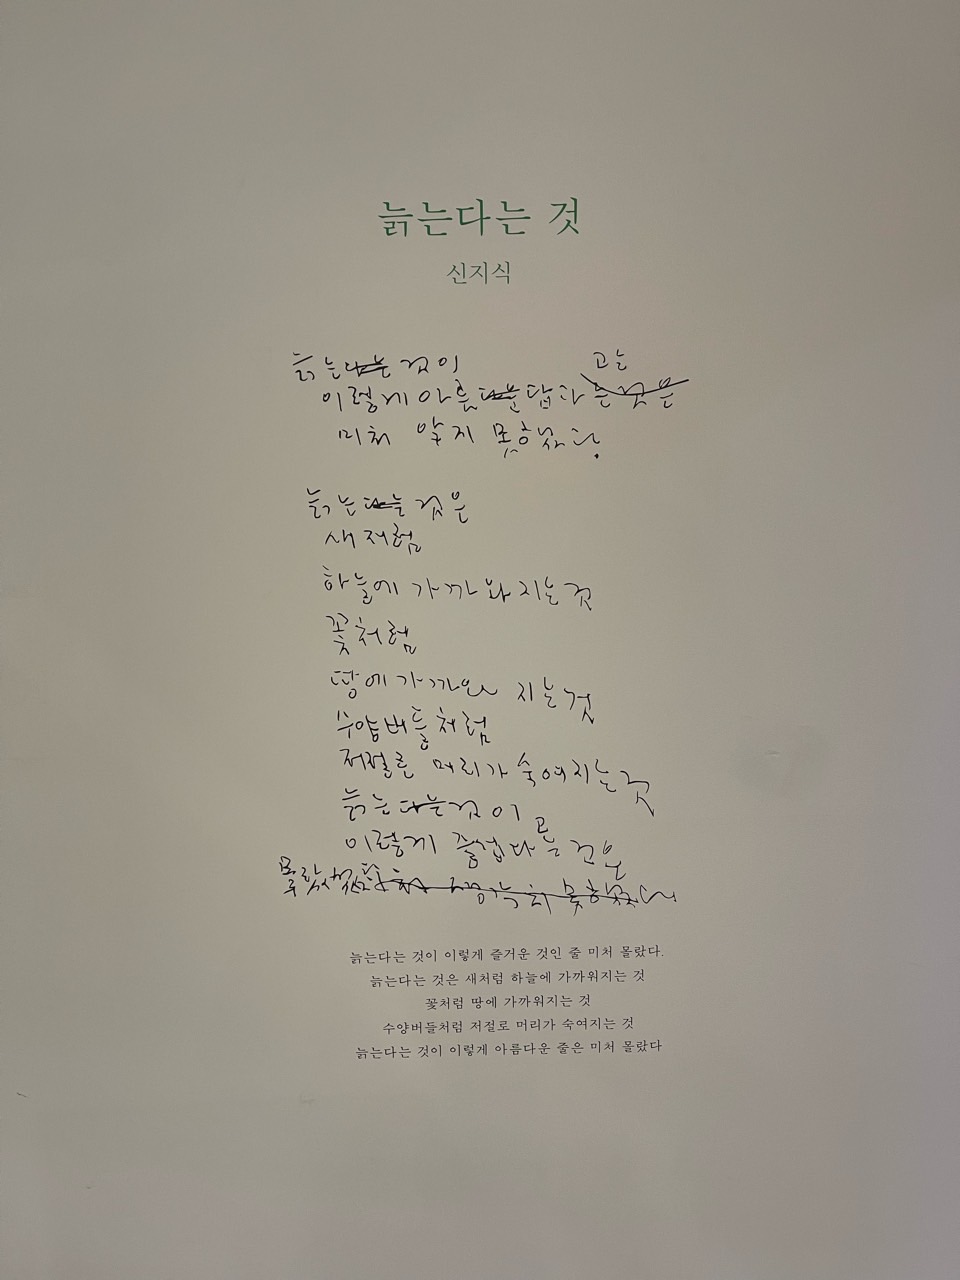 늙는다는 것
신지식
늙는다는 것이
고는
이렇게 아름다운답다는 것은
미처 알지 못했다.
늙는다는 것은
새처럼
하늘에 가까와 지는 것
꽃처럼
땅에 가까와 지는 것
수양버들처럼
저절로 머리가 숙여지는 것
늙는다는 것이
고
이렇게 즐겁다는 것은
몰랐었다 못했다
늙는다는 것이 이렇게 즐거운 것인 줄 미처 몰랐다.
늙는다는 것은 새처럼 하늘에 가까워지는 것
꽃처럼 땅에 가까워지는 것
수양버들처럼 저절로 머리가 숙여지는 것
늙는다는 것이 이렇게 아름다운 줄은 미처 몰랐다